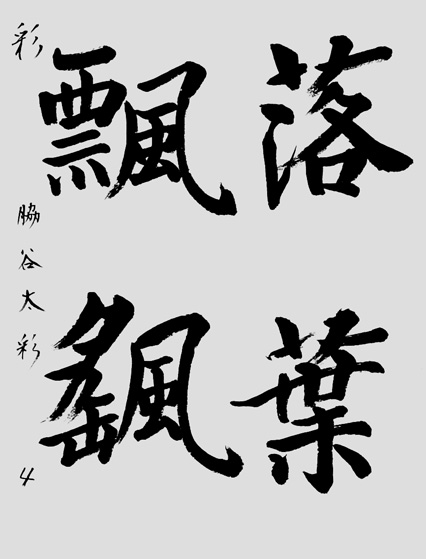 落葉
飄颻
彩 脇谷太彩 4